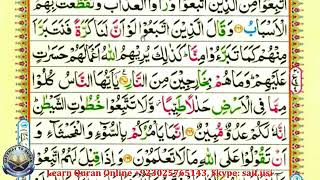 اتُّبِعُوْا مِنَ الَّذِيْنَ اتَّبَعُوْا وَرَاَوُا الْعَذَابَ وَتَقَطَّعَتْ بِهِمُ
الْاَسْبَابُ وَقَالَ الَّذِيْنَ اتَّبَعُوْا لَوْ اَنَّ لَنَا كَرَّةً فَنَتَبَرَّاَ
مِنْهُمْ كَمَا تَبَرَّءُوْا مِنَّا كَذٰلِكَ يُرِيْهِمُ اللّٰهُ اَعْمَالَهُمْ حَسَرٰتٍ
عَلَيْهِمْ وَمَا هُمْ بِخٰرِجِيْنَ مِنَ النَّارِ يٰاَيُّهَا النَّاسُ كُلُوْا
مِمَّا فِى الْاَرْضِ حَلٰلًا طَيِّبًا وَّلَا تَتَّبِعُوْا خُطُوٰتِ الشَّيْطٰنِ
اِنَّهٗ لَكُمْ عَدُوٌّ مُّبِيْنٌ اِنَّمَا يَاْمُرُكُمْ بِالسُّوْٓءِ وَالْفَحْشَآءِ وَ
اَنْ تَقُوْلُوْا عَلَى اللّٰهِ مَا لَا تَعْلَمُوْنَ وَاِذَا قِيْلَ لَهُمُ اتَّبِعُوْا
Learn Quran Online +923025765143, Skype: saif.just